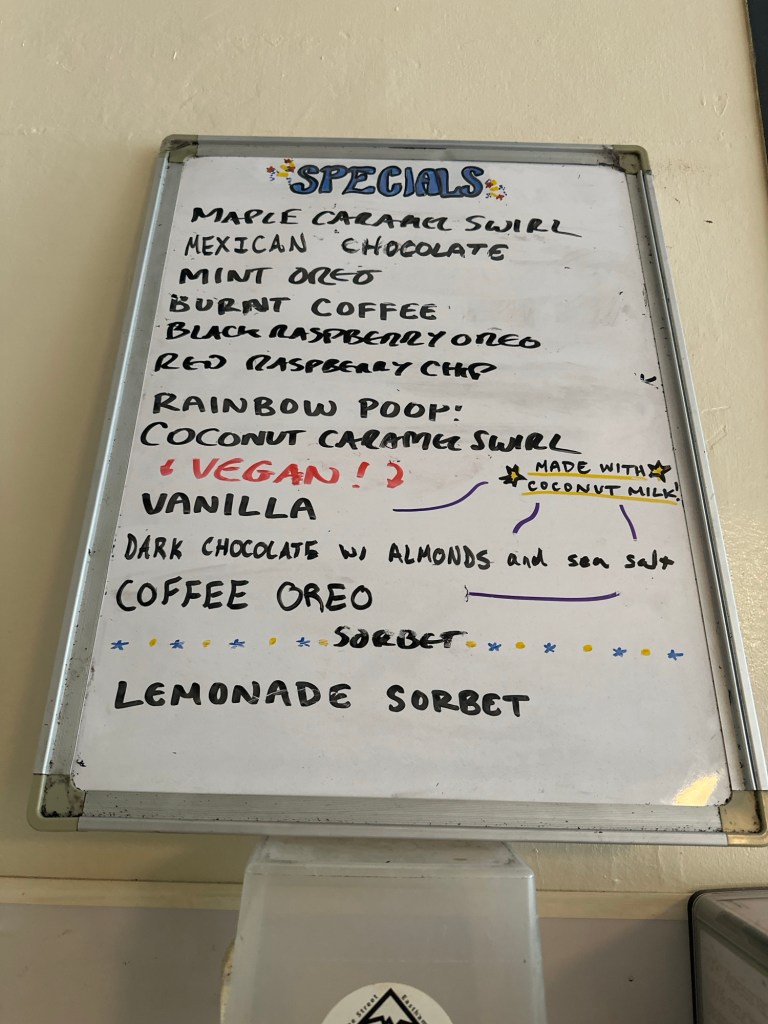 SPECIALS
MAPLE CARAMEL SWIRL
MEXICAN CHOCOLATE
MINT OREO
BURNT COFFEE
BLACK RASPBERRY OREO
RED RASPBERRY CHIP
RAINBOW POOP!
COCONUT CARAMEL SWIRL
VEGAN!
MADE WITH
COCONUT MILK!
VANILLA
DARK CHOCOLATE W/ ALMONDS and sea salt
COFFEE OREO
SORBET
LEMONADE SORBET
Street